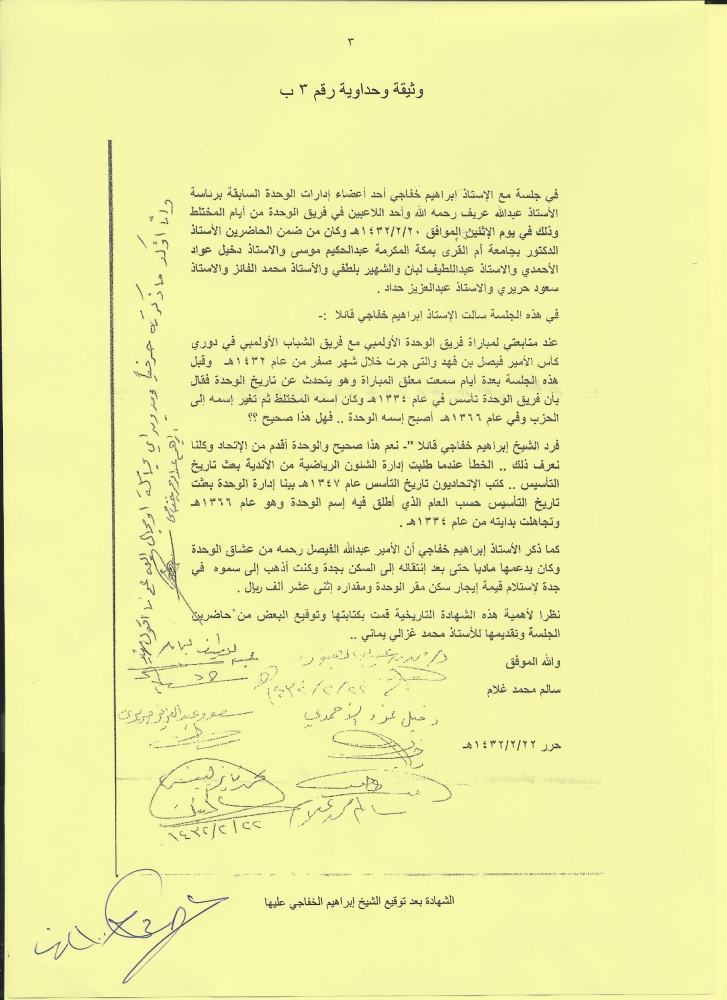 ٣
وثيقة وحداوية رقم ٣ ب
في جلسة مع الإستاذ إبراهيم خفاجي أحد أعضاء إدارات الوحدة السابقة برئاسة
الأستاذ عبدالله عريف رحمه الله وأحد اللاعبين في فريق الوحدة من أيام المختلط
وذلك في يوم الإثنين الموافق ١٤٣٢/٢/٢٠هـ وكان من ضمن الحاضرين الأستاذ
الدكتور بجامعة أم القرى بمكة المكرمة عبدالحكيم موسى والاستاذ دخيل عواد
الأحمدي والاستاذ عبداللطيف لبان والشهير بلطفي والأستاذ محمد الفائز والاستاذ
سعود حريري والاستاذ عبدالعزيز حداد .
في هذه الجلسة سالت الإستاذ إبراهيم خفاجي قائلا :-
عند متابعتي لمباراة فريق الوحدة الأولمبي مع فريق الشباب الأولمبي في دوري
كأس الأمير فيصل بن فهد والتى جرت خلال شهر صفر من عام ١٤٣٢هـ وقبل
هذه الجلسة بعدة أيام سمعت معلق المباراة وهو يتحدث عن تاريخ الوحدة فقال
بأن فريق الوحدة تأسس في عام ١٣٣٤هـ وكان اسمه المختلط ثم تغير إسمه إلى
الحزب وفي عام ١٣٦٦هـ أصبح إسمه الوحدة .. فهل هذا صحيح ؟؟
فرد الشيخ إبراهيم خفاجي قائلا "- نعم هذا صحيح والوحدة أقدم من الإتحاد وكلنا
نعرف ذلك .. الخطأ عندما طلبت إدارة الشئون الرياضية من الأندية بعث تاريخ
التأسيس .. كتب الإتحاديون تاريخ التأسس عام ١٣٤٧هـ بينا إدارة الوحدة بعثت
تاريخ التأسيس حسب العام الذي أطلق فيه إسم الوحدة وهو عام ١٣٦٦هـ
وتجاهلت بدايته من عام ١٣٣٤هـ .
كما ذكر الأستاذ إبراهيم خفاجي أن الأمير عبدالله الفيصل رحمه من عشاق الوحدة
وكان يدعمها ماديا حتى بعد إنتقاله إلى السكن بجدة وكنت أذهب إلى سموه في
جدة لإستلام قيمة إيجار سكن مقر الوحدة ومقداره إثنى عشر ألف ريال .
نظرا لأهمية هذه الشهادة التاريخية قمت بكتابتها وتوقيع البعض من حاضرين
الجلسة وتقديمها للأستاذ محمد غزالي يماني ..
والله الموفق
سالم محمد غلام
١٤٣٢/٢/٢٢
دخيل عواد الأحمدي
حرر ١٤٣٢/٢/٢٢هـ
سالم محمد غلام
١٤٣٢/٢/٢٢
الشهادة بعد توقيع الشيخ إبراهيم الخفاجي عليها